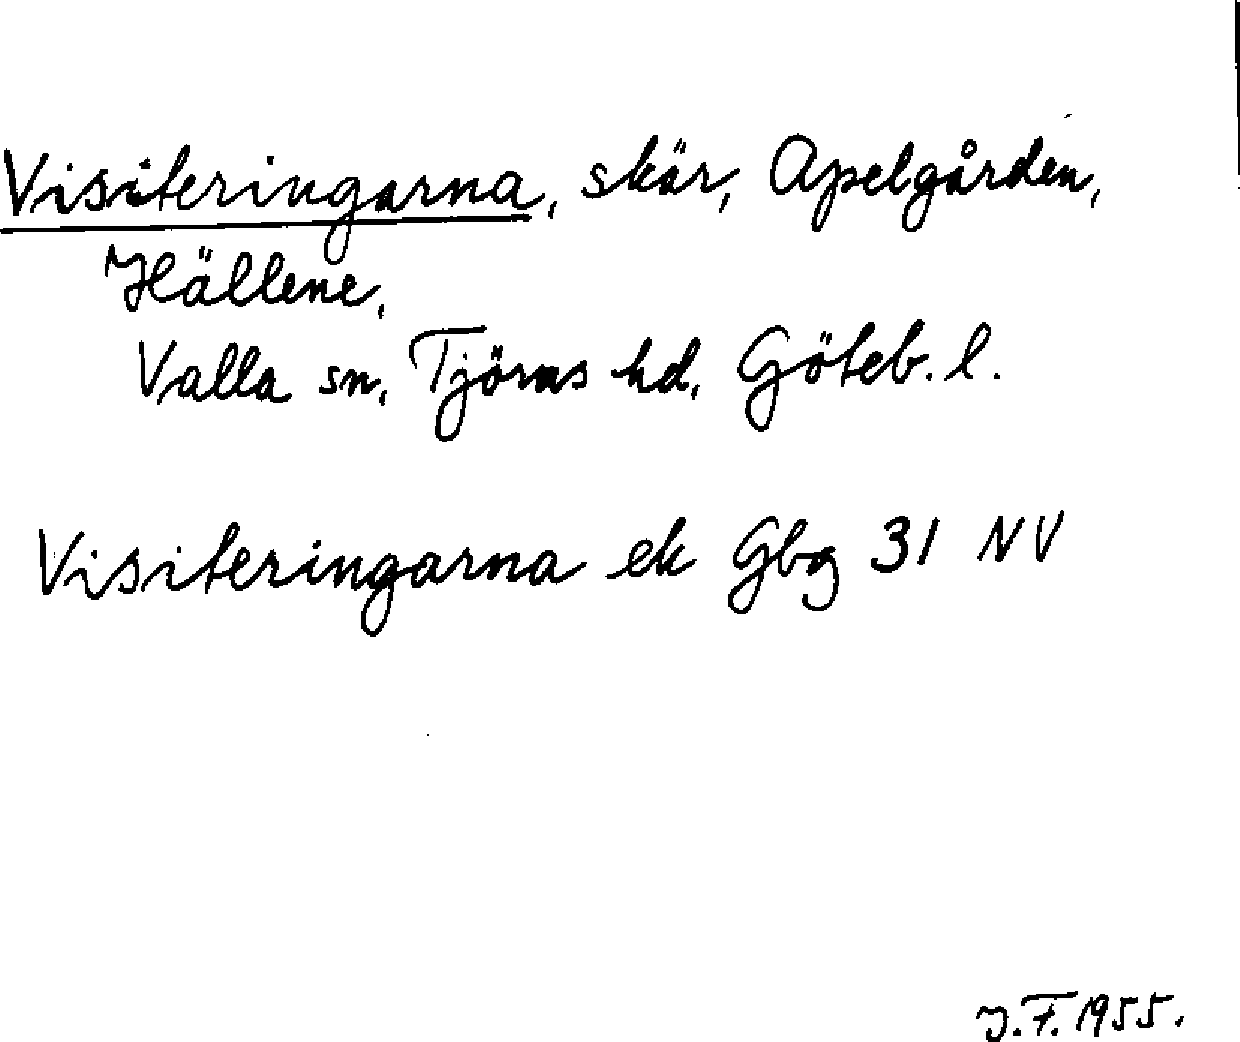 Visiteringarna, skär, Apelgården,
Hällene,
Valla sn, Tjörns hd, Göteb. l.
Visiteringarna ek Gbg 31 NV
J.F. 1955.